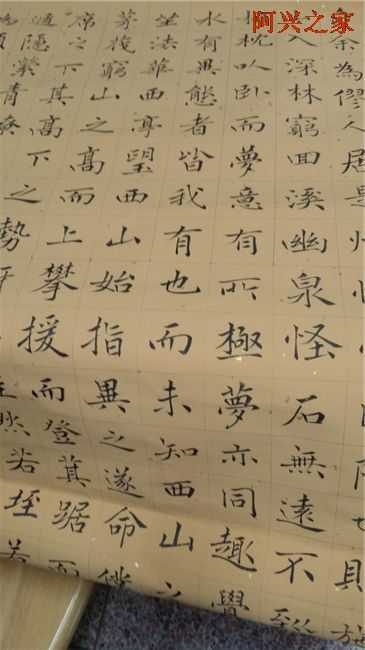 阿兴之家
余為僇人居是
入深林窮回溪幽泉怪石無遠不到
枕以臥而夢意有所極夢亦同趣覺
水有異態者皆我有也而未知西山之
坐法華西亭望西山始指異之遂命僕
茅茷窮山之高而上攀援而登箕踞而
席之下其高下之勢岈然若垤若
隱縈青繚